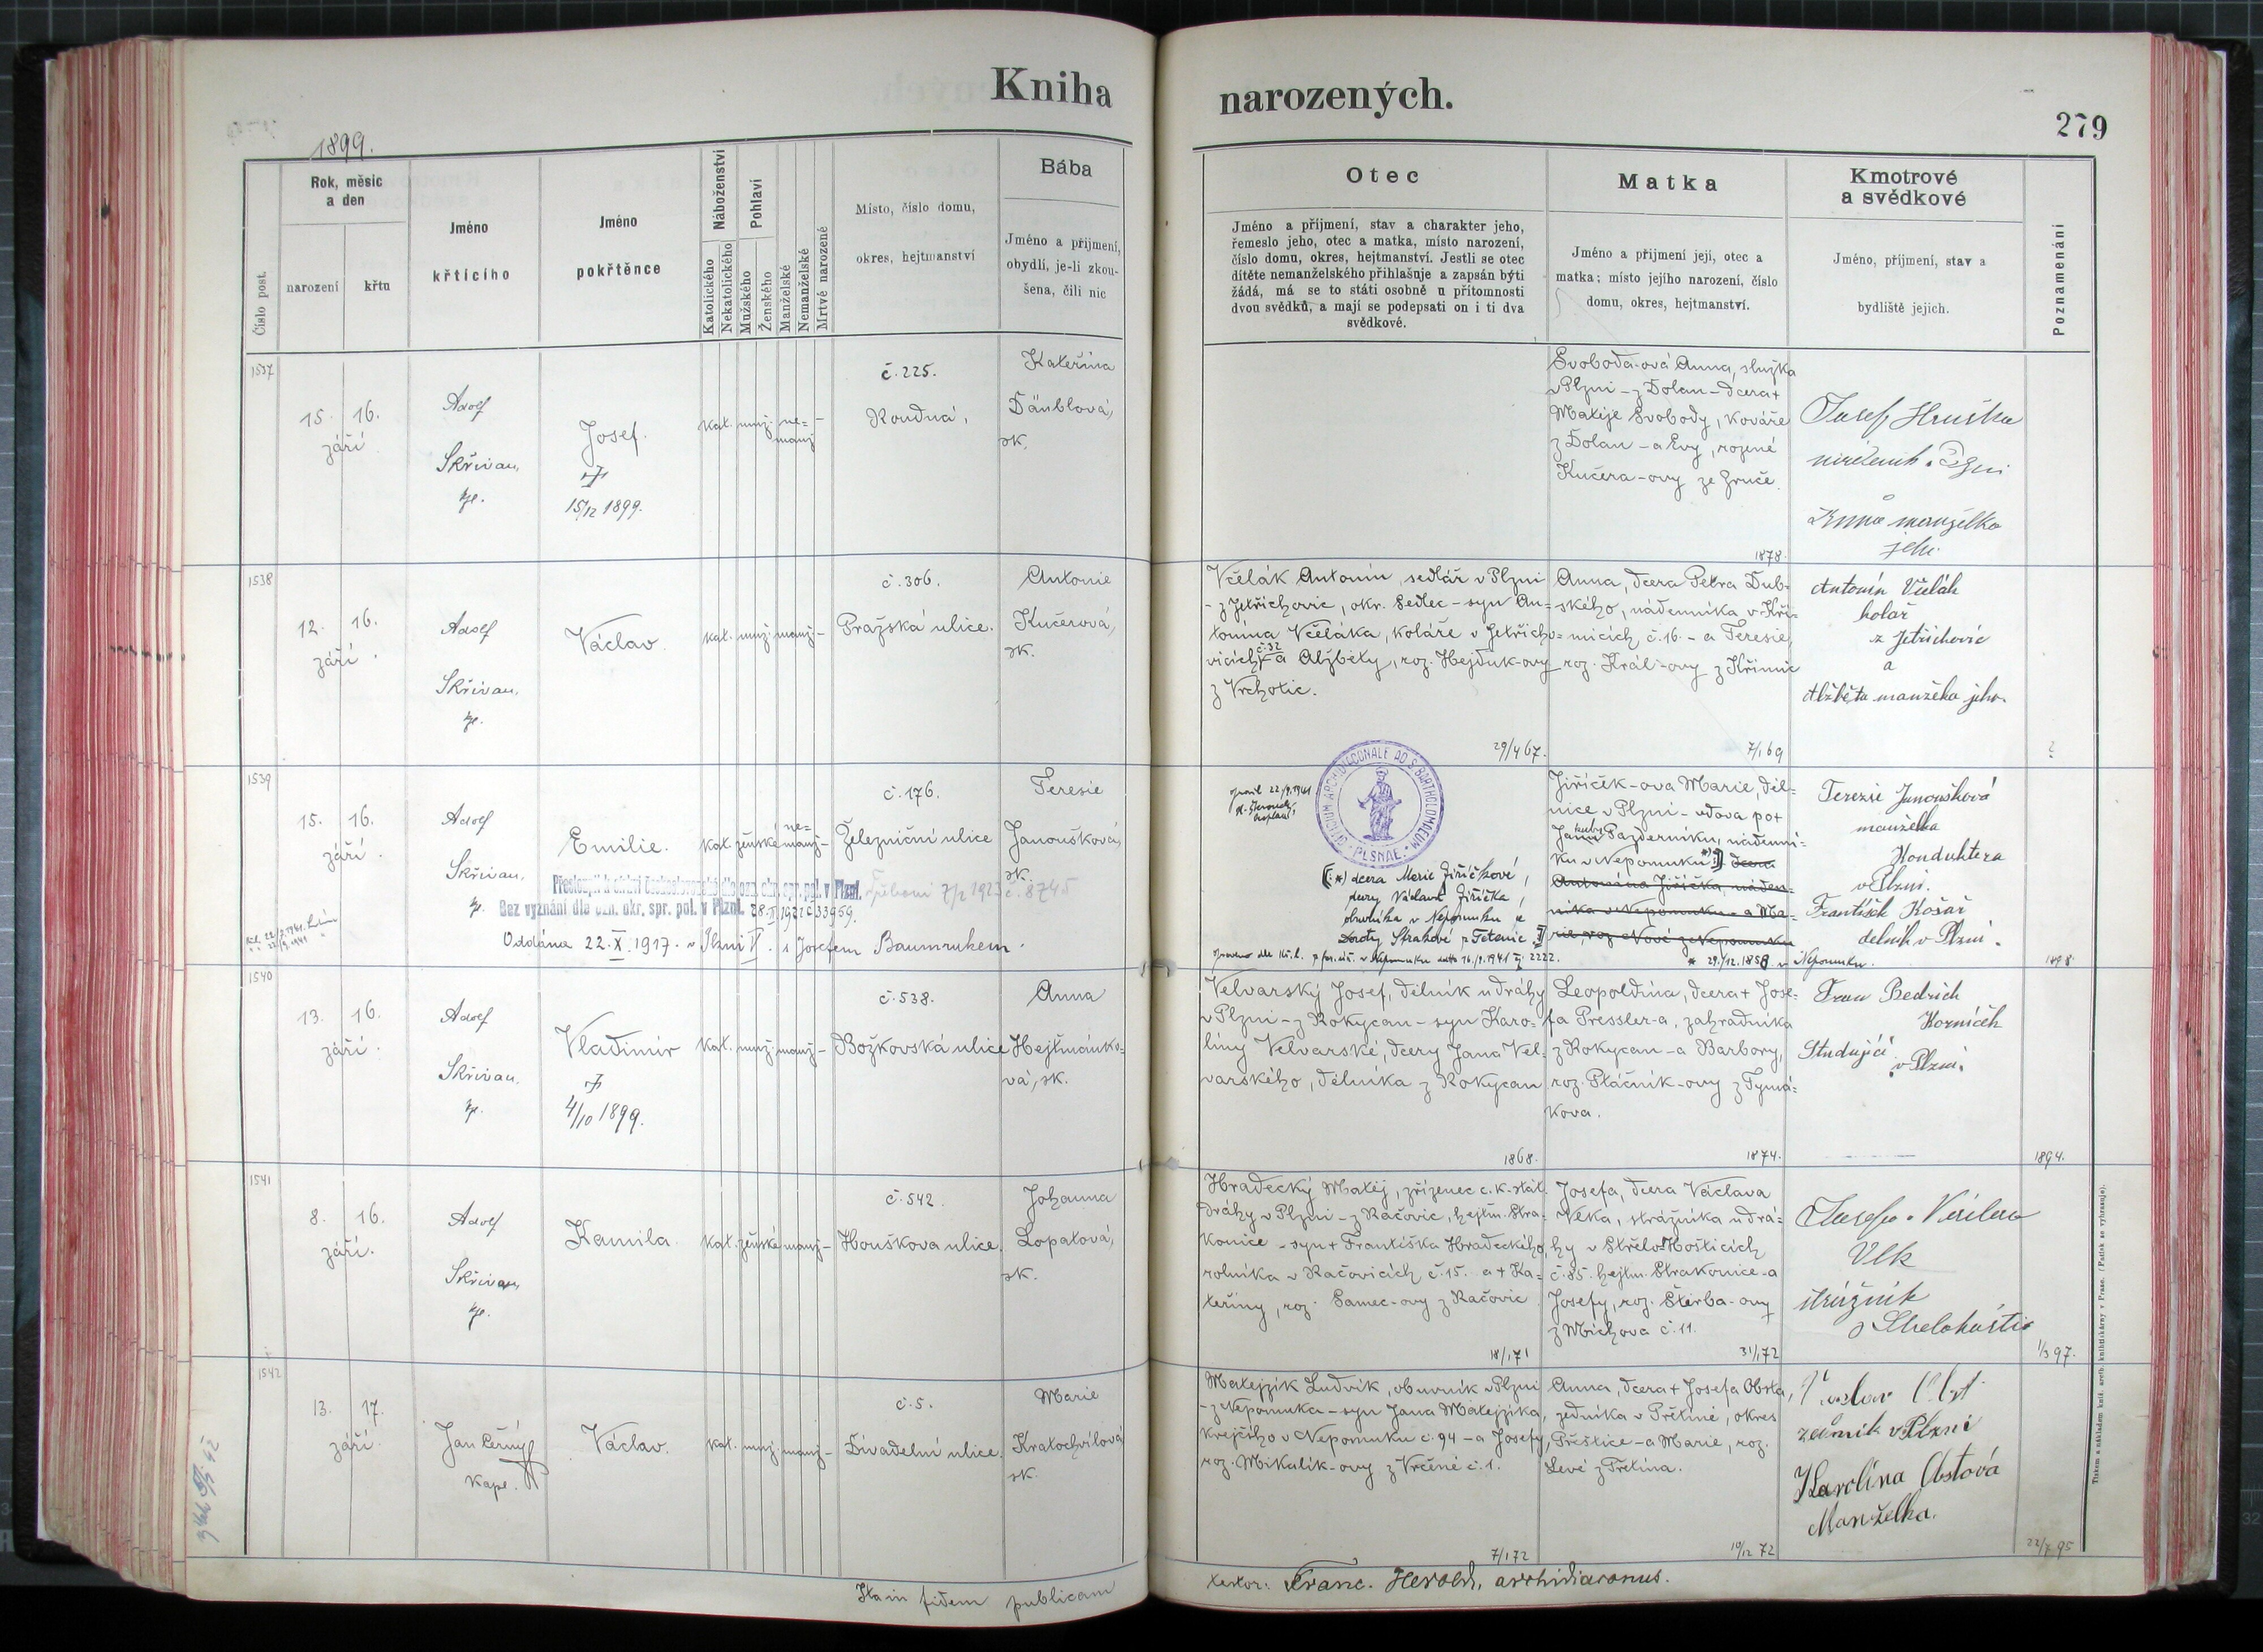 Kniha
narozených.
279
1899.
Číslo post.
Rok, měsíc
a den
narození
křtu
Jméno
křtícího
Jméno
pokřtěnce
Náboženství
Katolického
Nekatolického
Pohlaví
Mužského
Ženského
Manželské
Nemanželské
Mrtvě narozené
Místo, číslo domu,
okres, hejtmanství
Bába
Jméno a příjmení,
obydlí, je-li zkou-
šena, čili nic
Otec
Jméno a příjmení, stav a charakter jeho,
řemeslo jeho, otec a matka, místo narození,
číslo domu, okres, hejtmanství. Jestli se otec
dítěte nemanželského přihlašuje a zapsán býti
žádá, má se to státi osobně u přítomnosti
dvou svědků, a mají se podepsati on i ti dva
svědkové.
Matka
Jméno a příjmení její, otec a
matka; místo jejího narození, číslo
domu, okres, hejtmanství.
Kmotrové
a svědkové
Jméno, příjmení, stav a
bydliště jejich.
Poznamenání
1537
15. 16.
září
Adolf
Skřivan,
kp.
Josef.
†
15/12 1899.
kat. muž. ne-
manž. –
č. 225.
Roudná,
Kateřina
Däublová,
zk.
Svoboda-ová Anna, služka
v Plzni – z Dolan – dcera †
Matěje Svobody, kováře
z Dolan – a Evy, rozené
Kučera-ovy ze Zruče.
1878.
Josef Hruška
Anna manželka
jeho.
1538
12. 16.
září.
Adolf
Skřivan,
kp.
Václav.
kat. muž. manž. –
č. 306.
Pražská ulice.
Antonie
Kučerová,
zk.
Včelák Antonín, sedlář v Plzni
– z Jetřichovic, okr. Sedlec – syn An-
tonína Včeláka, koláře v Jetřicho-
vicích č. 32 – a Alžběty, roz. Hejduk-ovy
z Vrchotic.
29/4 67.
Anna, dcera Petra Dub-
ského, nádenníka v Kři-
micích č. 16. – a Teresie,
roz. Král-ovy z Křimic
7/1 69
Antonín Včelák
kolář
z Jetřichovic
a
Alžběta manželka jeho.
?
1539
15. 16.
září.
Adolf
Skřivan,
kp.
Emilie.
kat. ženské ne-
manž. –
č. 176.
Železniční ulice
Teresie
Janoušková,
zk.
Přestoupila k církvi československé dle ozn. okr. spr. pol. v Plzni. 7/2 1923 č. 8745
Bez vyznání dle ozn. okr. spr. pol. v Plzni. 28. 1921 č. 33959.
Oddána 22. X. 1917. v Plzni s Josefem Baumrukem.
22/9. 1941
OFFICIUM ARCHIDIACONALE AD S. BARTHOLOMAEUM PLSNAE
(:*) dcera Marie Jiříčkové,
dcery Václava Jiříčka,
obuvníka v Nepomuku a
Doroty Strakové z Tetenic :)
Opraveno dle kř. l. v Nepomuku 16./9. 1941 č. 2222.
Jiříček-ova Marie, děl-
nice v Plzni – vdova po †
Jakubu Pazderníku, nádenní-
ku v Nepomuku *) dcera
Antonína Jiříčka, náden-
níka v Nepomuku – a Ma-
rie, roz. Nové z Nepomuku
* 29./12. 1858 v Nepomuku.
Terezie Janoušková
manželka
Konduktera
v Plzni.
František Košař
dělník v Plzni.
1898
1540
13. 16.
září.
Adolf
Skřivan.
kp.
Vladimír
†
4/10 1899.
kat. muž. manž. –
č. 538.
Božkovská ulice
Anna
Hejtmánko-
vá, zk.
Velvarský Josef, dělník u dráhy
v Plzni – z Rokycan – syn Karo-
liny Velvarské, dcery Jana Vel-
varského, dělníka z Rokycan
1868.
Leopoldina, dcera † Jose-
fa Pressler-a, zahradníka
z Rokycan – a Barbory,
roz. Ptáčník-ovy z Tymá-
kova.
1874.
Bedrich
Korníček
Studující
v Plzni.
1894.
1541
8. 16.
září.
Adolf
Skřivan,
kp.
Kamila.
kat. ženské manž. –
č. 542.
Houškova ulice.
Johanna
Lopatová,
zk.
Hradecký Matěj, zřízenec c. k. stát.
dráhy v Plzni – z Račovic, hejtm. Stra-
konice – syn † Františka Hradeckého,
rolníka v Račovicích č. 15. a † Ka-
teřiny, roz. Samec-ovy z Račovic
18/1 71
Josefa, dcera Václava
Vlka, strážníka u drá-
hy v Střelo-Hošticích
č. 85. hejtm. Strakonice – a
Josefy, roz. Štěrba-ovy
z Míchova č. 11.
31/1 72
Josefa
Vlk
strážník
1/3 97.
1542
13. 17.
září.
Jan Černý
kapl.
Václav.
kat. muž. manž. –
č. 5.
Divadelní ulice.
Marie
Kratochvílová
zk.
Matejzík Ludvík, obuvník v Plzni
– z Nepomuka – syn Jana Matejzíka,
krejčího v Nepomuku č. 94 – a Josefy,
roz. Mikulík-ovy z Vrčeně č. 1.
7/1 72
Anna, dcera † Josefa Obsta,
zedníka v Přetíně, okres
Přeštice – a Marie, roz.
Levé z Přetína.
19/12 72
zedník v Plzni
Karolína Obstová
Manželka.
22/7 95
Ita in fidem publicam
testor: Franc. Herold, archidiaconus.